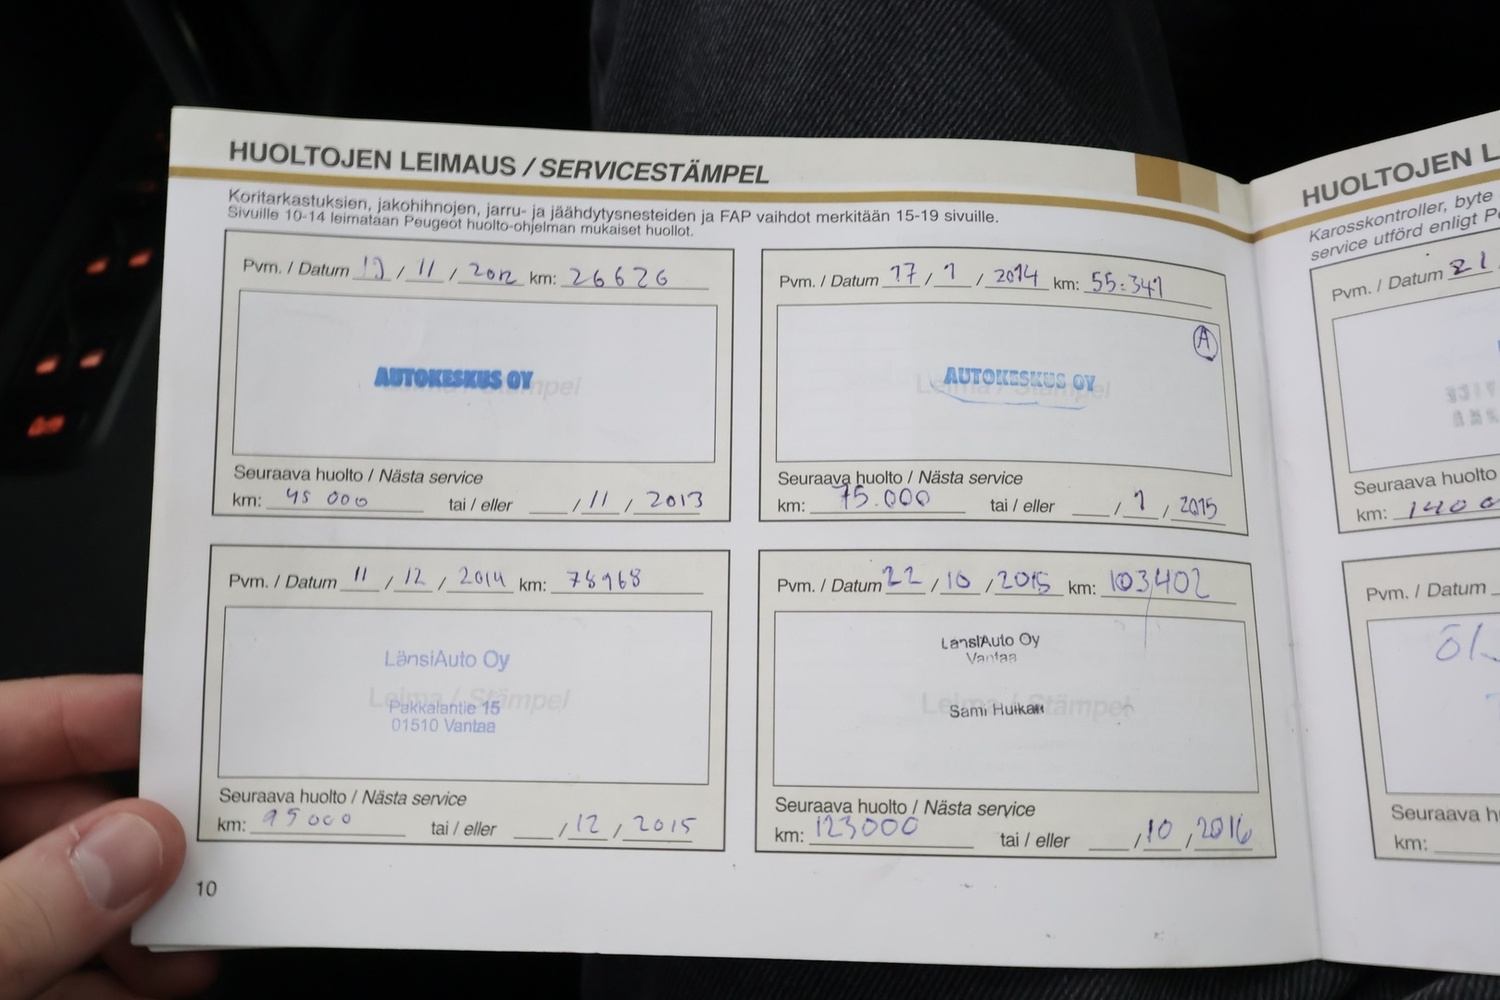 HUOLTOJEN LEIMAUS / SERVICESTÄMPEL
Koritarkastuksien, jakohihnojen, jarru- ja jäähdytysnesteiden ja FAP vaihdot merkitään 15-19 sivuille.
Sivuille 10-14 leimataan Peugeot huolto-ohjelman mukaiset huollot.
Pvm. / Datum / 11 / 2012 km: 26626
AUTOKESKUS OY
Leima / Stämpel
Seuraava huolto / Nästa service
km: 45 000 tai / eller / 11 / 2013
Pvm. / Datum 17 / 1 / 2014 km: 55.341
A
AUTOKESKUS OY
Leima / Stämpel
Seuraava huolto / Nästa service
km: 75.000 tai / eller / 1 / 2015
Pvm. / Datum 11 / 12 / 2014 km: 78968
LänsiAuto Oy
Leima / Stämpel
Pakkalantie 15
01510 Vantaa
Seuraava huolto / Nästa service
km: 95000 tai / eller / 12 / 2015
Pvm. / Datum 22 / 10 / 2015 km: 103402
LänsiAuto Oy
Vantaa
Leima / Stämpel
Sami
Seuraava huolto / Nästa service
km: 123000 tai / eller / 10 / 2016
10
HUOLTOJEN L
Karosskontroller, byte
service utförd enligt P
Pvm. / Datum 21
Seuraava huolto
km: 1400
Pvm. / Datum
Seuraava h
km: